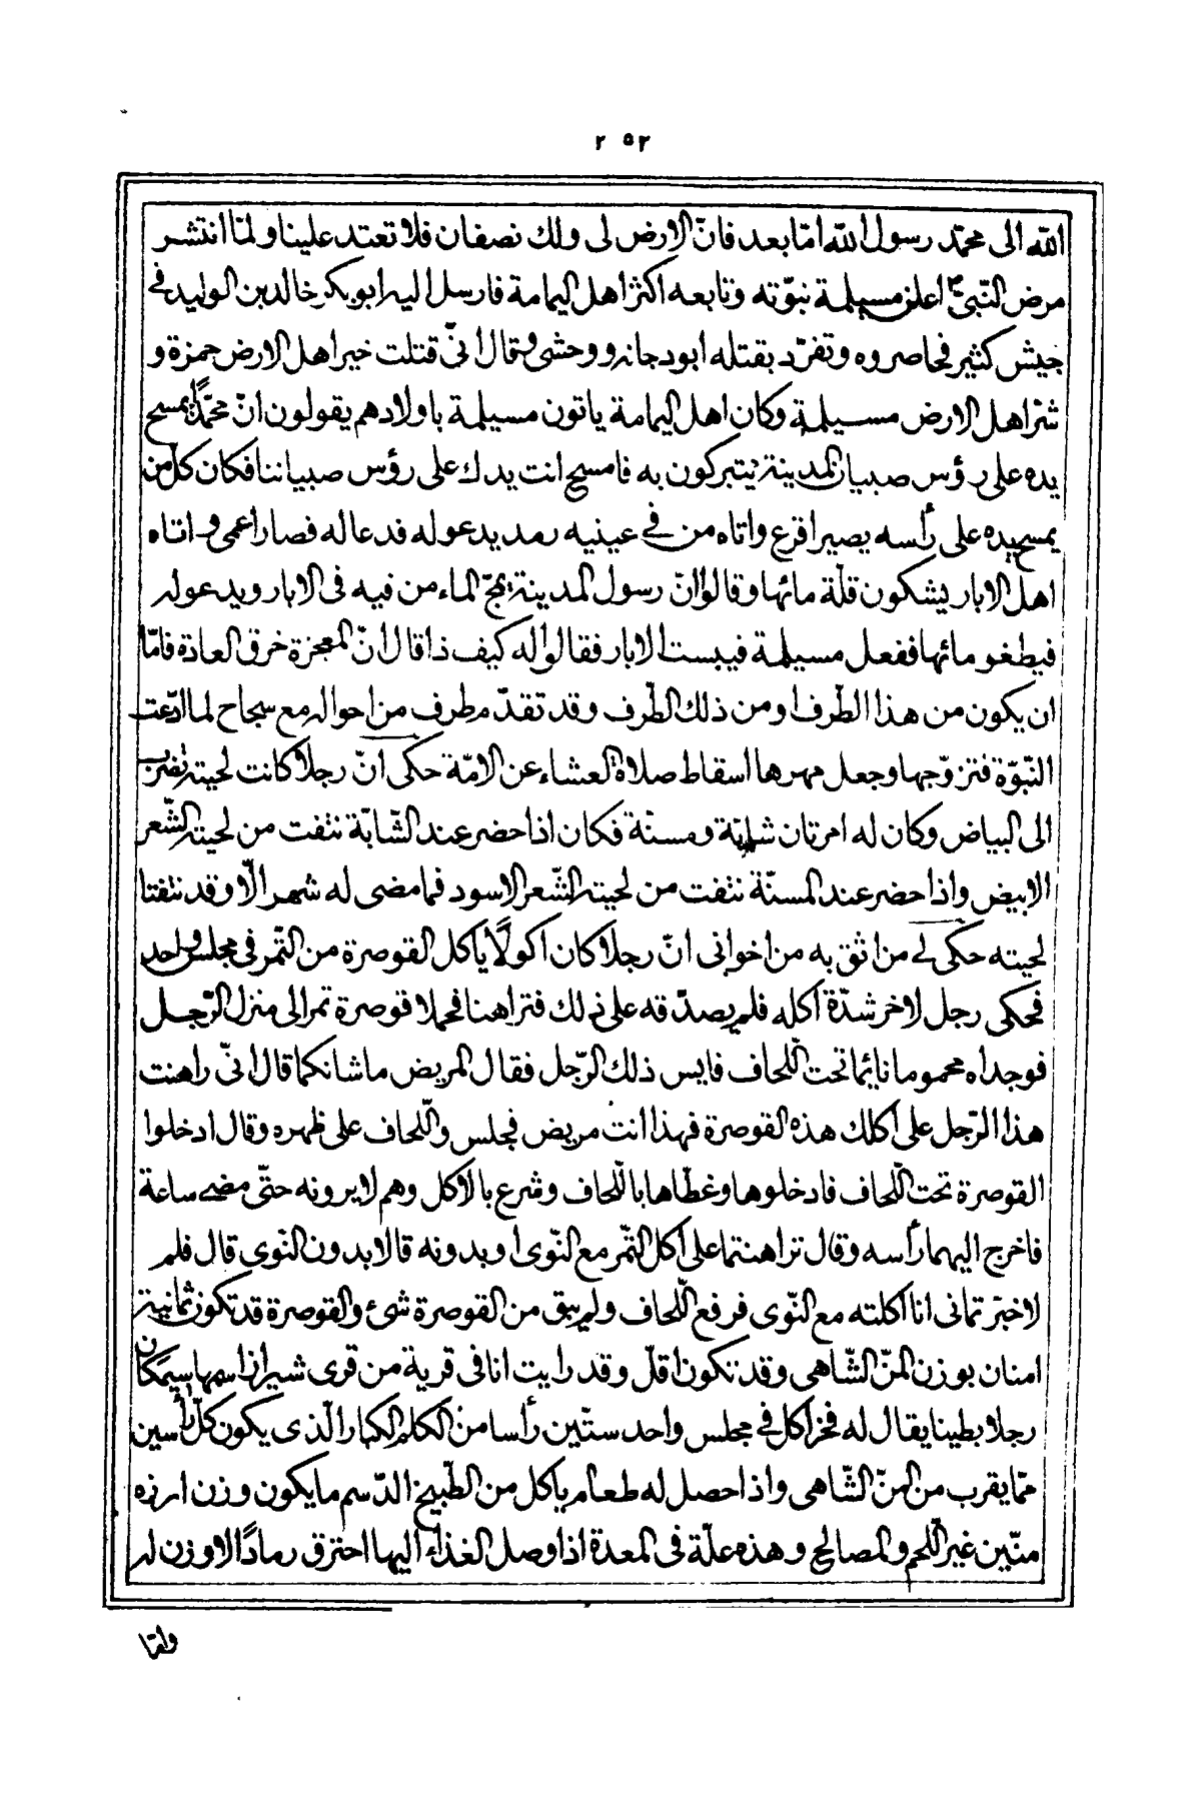 ٢٥٢
الله الى محمّد رسول الله امّا بعد فانّ الارض لى ولك نصفان فلا تعتد علينا ولمّا انتشر
مرض النّبىّ اعلن مسيلمة نبوّته وتابعه اكثر اهل اليمامة فارسل اليه ابو بكر خالد بن الوليد فى
جيش كثير فحاصروه وتفرّد بقتله ابو دجانه ووحشى وقال انّى قتلت خير اهل الارض حمزة و
شرّ اهل الارض مسيلمة وكان اهل اليمامة ياتون مسيلمة باولادهم يقولون انّ محمّدًا يمسح
يده على رؤس صبيان المدينة يتبركون به فامسح انت يدك على رؤس صبياننا فكان كلّ من
يمسح يده على رأسه يصير اقرع واتاه من فى عينيه رمد يدعو له فدعا له فصار اعمى و اتاه
اهل الابار يشكون قلّة مائها وقالوا انّ رسول المدينة يمجّ الماء من فيه فى الابار ويدعو له
فيطغو مائها ففعل مسيلمة فيبست الابار فقالوا له كيف ذا قال انّ المعجزة خرق العادة فامّا
ان يكون من هذا الطّرف او من ذلك الطّرف وقد تقدّم طرف من احواله مع سجاح لما ادّعت
النّبوّة فتزوّجها وجعل مهرها اسقاط صلاة العشاء عن الامّة حكى انّ رجلا كانت لحيته تضرب
الى البياض وكان له امرتان شابّة ومسنّة فكان اذا حضر عند الشّابّة نتفت من لحيته الشّعر
الابيض واذا حضر عند المسنّة نتفت من لحيته الشّعر الاسود فما مضى له شهر الّا وقد نتفتا
لحيته حكى لى من اثق به من اخوانى انّ رجلا كان اكولًا ياكل القوصرة من التّمر فى مجلس واحد
فحكى رجل لاخر شدّة اكله فلم يصدّقه على ذلك فتراهنا فحملا قوصرة تمر الى منزل الرّجل
فوجداه محموما نائما تحت اللّحاف فايس ذلك الرّجل فقال المريض ما شانكما قال انّى راهنت
هذا الرّجل على اكلك هذه القوصرة فهذا انت مريض فجلس واللّحاف على ظهره وقال ادخلوا
القوصرة تحت اللّحاف فادخلوها وغطّاها باللّحاف وشرع بالاكل وهم لا يرونه حتّى مضى ساعة
فاخرج اليهما رأسه وقال تراهنتما على اكل التّمر مع النّوى او بدونه قالا بدون النّوى قال فلم
لا خبّرتمانى انا اكلته مع النّوى فرفع اللّحاف ولم يبق من القوصرة شئ والقوصرة قد تكون ثمانية
امنان بوزن المنّ الشّاهى وقد تكون اقلّ وقد رايت انا فى قرية من قرى شيراز اسمها سيمكان
رجلا بطينا يقال له فخر اكل فى مجلس واحد ستّين رأسا من الكلم الكبار الّذى يكون كلّ رأسين
ممّا يقرب من المنّ الشّاهى واذا حصل له طعام ياكل من الطّبيخ الدّسم ما يكون وزن ارزه
منّين غير اللّحم والمصالح وهذه علّة فى المعدة اذا وصل الغذاء اليها احترق رمادًا لا وزن له